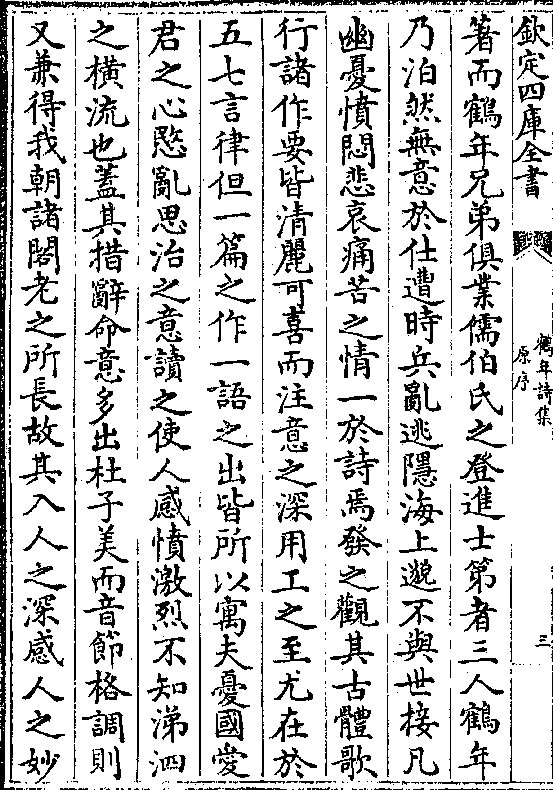 欽定四庫全書
鶴年詩集
原序
三
著而鶴年兄弟俱業儒伯氏之登進士第者三人鶴年
乃泊然無意於仕遭時兵亂逃隱海上邈不與世接凡
幽憂憤悶悲哀痛苦之情一於詩焉發之觀其古體歌
行諸作要皆清麗可喜而注意之深用工之至尤在於
五七言律但一篇之作一語之出皆所以寓夫憂國愛
君之心愍亂思治之意讀之使人感憤激烈不知涕泗
之橫流也蓋其措辭命意多出杜子美而音節格調則
又兼得我朝諸閣老之所長故其入人之深感人之妙